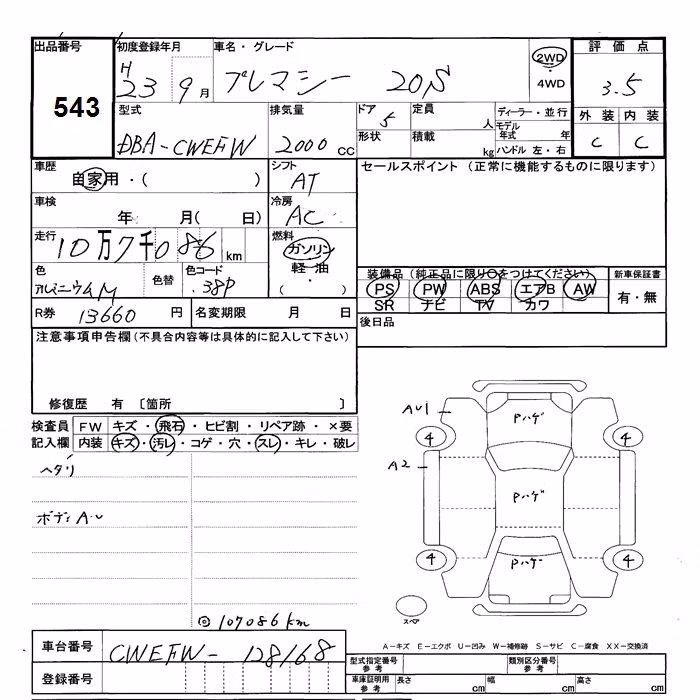 出品番号 初度登録年月 車名・グレード 2WD・4WD 評価点
543 H23 9月 プレマシー 20S 3.5
型式 排気量 ドア 定員 人 ディーラー・並行 外装 内装
DBA-CWEFW 2000cc 5 形状 積載 kg モデル年式 年 ハンドル 左・右 C C
車歴 自家用・( ) シフト AT セールスポイント (正常に機能するものに限ります)
車検 年 月( 日) 冷房 AC
走行 10万7千086km 燃料 ガソリン 軽油 ( )
色 アルミニウムM 色替 色コード 38P 装備品 (純正品に限り○をつけてください) 新車保証書
PS PW ABS エアB AW 有・無
SR ナビ TV カワ
R券 13660円 名変期限 月 日 後日品
注意事項申告欄 (不具合内容等は具体的に記入して下さい)
修復歴 有 〔箇所 〕
検査員 FW キズ・飛石・ヒビ割・リペア跡・×要
記入欄 内装 キズ・汚レ・コゲ・穴・スレ・キレ・破レ
ヘタリ
ボディA・U
AU1 Pハゲ
4 4
A2 Pハゲ
4 Pハゲ 4
スペア
◎107086km
A-キズ E-エクボ U-凹み W-補修跡 S-サビ C-腐食 XX-交換済
車台番号 CWEFW-128168 型式指定番号 参考 類別区分番号 参考
登録番号 車庫証明用 参考 長さ cm 幅 cm 高さ cm